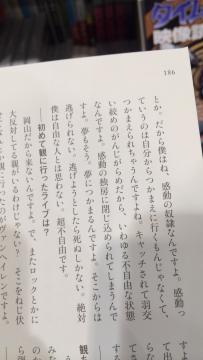 186
とか。だから僕はね、感動の奴隷なんですよ。感動っ
ていうのは自分からつかまえに行くもんじゃなくて、
つかまえられちゃうんですよね。キャッチされて羽交
い絞めのがんじがらめだから、いわゆる不自由な状態
なんですよ。感動の独房に閉じ込められてしまうんで
すよ。夢もそう。夢につかまるんですよ。そこからは
逃げられない。逃げようとしたら死ぬしかない。絶対
僕は自由な人とは思わない。超不自由です。
──初めて観に行ったライブは？
岡山だから来ないんですよ。で、またロックとかに
大反対してる親がいるわけじゃない？ そこをねじ伏
観に行ったのがヴァン・ヘイレンですよ。
タイム
映像